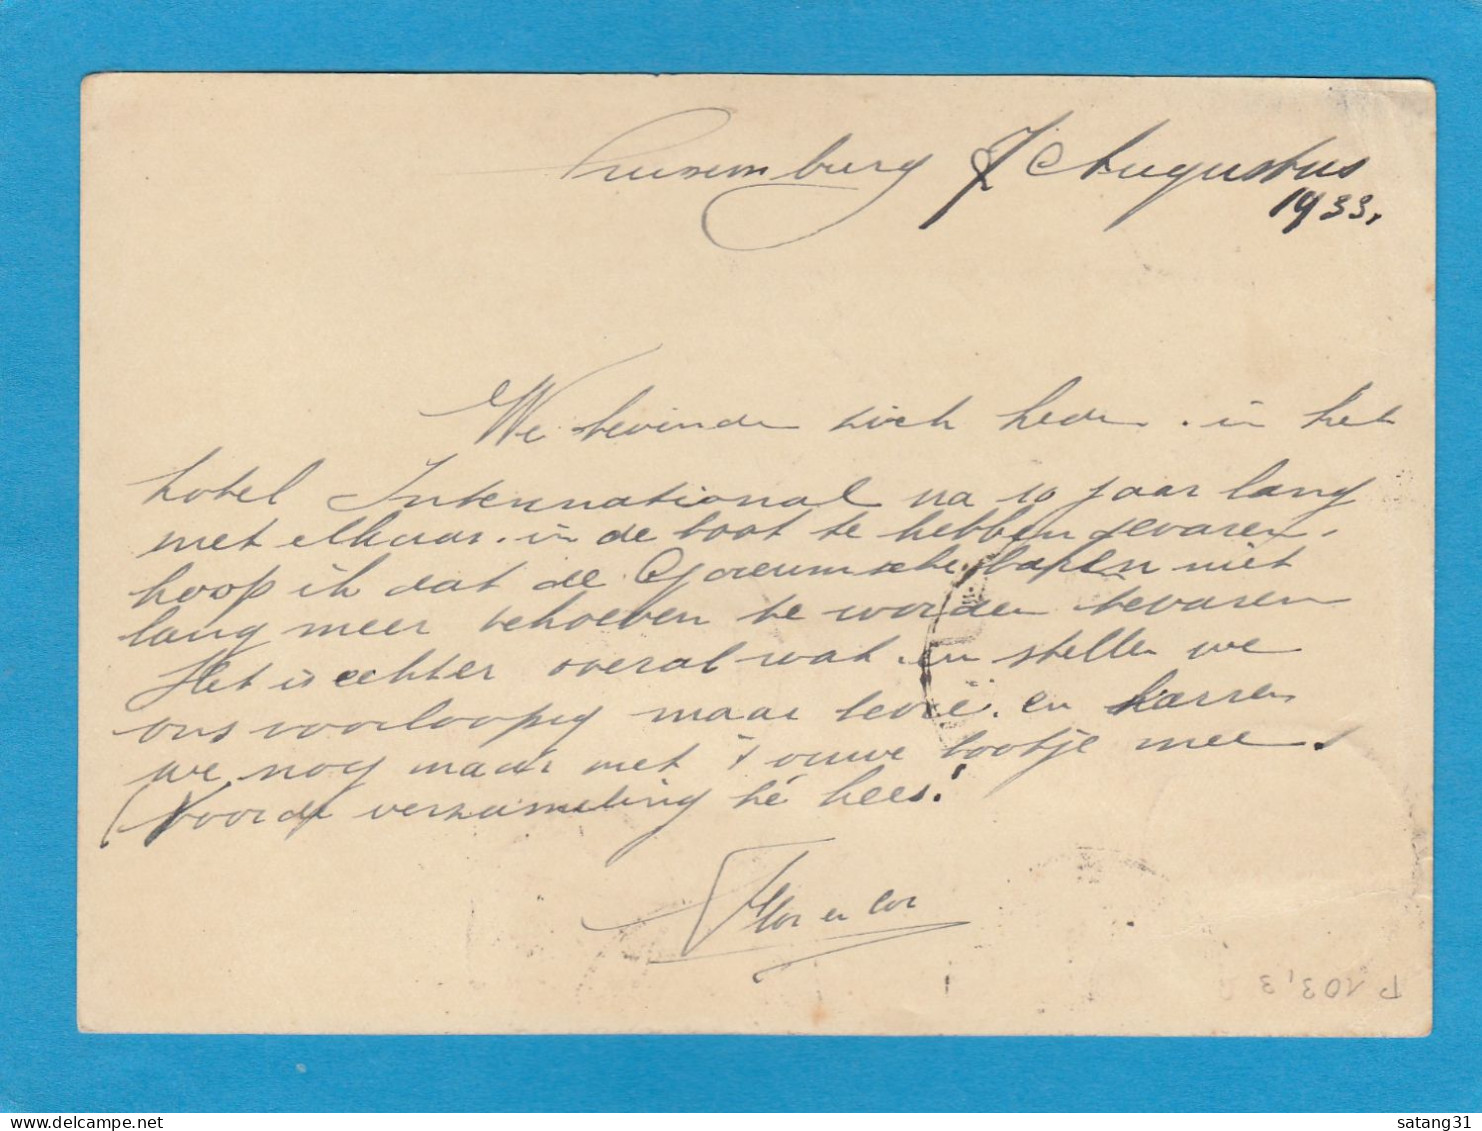 Luxemburg 7 Augustus
1933.
We bevinden zich heden in het
hotel Internnational na 10 jaar lang
met elkaar in de boot te hebben gevaren.
hoop ik dat de Gorcumsche niet
lang meer behoeven te worden bevaren
Het is echter overal wat en stellen we
ons voorloopig maar tevre. en karren
we nog maar met 't ouwe bootje mee.
Voor de verzameling hé Kees!
Flor en Cor
P 103,3
satang31